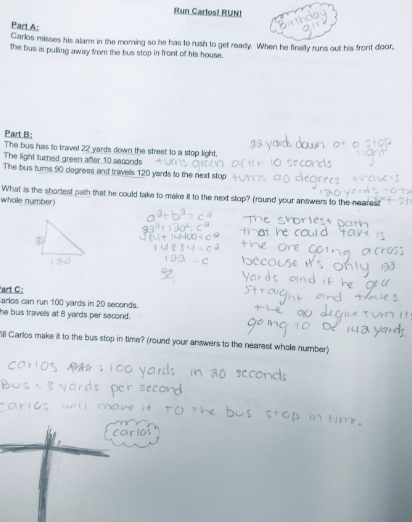 Run Carlos! RUN!
Birthday
girl
Part A:
Carlos misses his alarm in the morning so he has to rush to get ready. When he finally runs out his front door,
the bus is pulling away from the bus stop in front of his house.
Part B:
The bus has to travel 22 yards down the street to a stop light.
22 yards down at a stop
light
The light turned green after 10 seconds
turns green after 10 seconds
The bus turns 90 degrees and travels 120 yards to the next stop
turns 90 degrees travels
120 yards to
What is the shortest path that he could take to make it to the next stop? (round your answers to the nearest
whole number)
a²+b²=c²
22²+120²=c²
484+14400=c²
14884=c²
122=c
120
The shortest path
that he could take is
the one going across
because it's only 122
yards and if he
straight and takes
the 90 degree turn it's
going to be 142 yards.
art C:
arlos can run 100 yards in 20 seconds.
he bus travels at 8 yards per second.
ill Carlos make it to the bus stop in time? (round your answers to the nearest whole number)
Carlos : 100 yards in 20 seconds
Bus: 8 yards per second
Carlos will make it to the bus stop in time.
Carlos